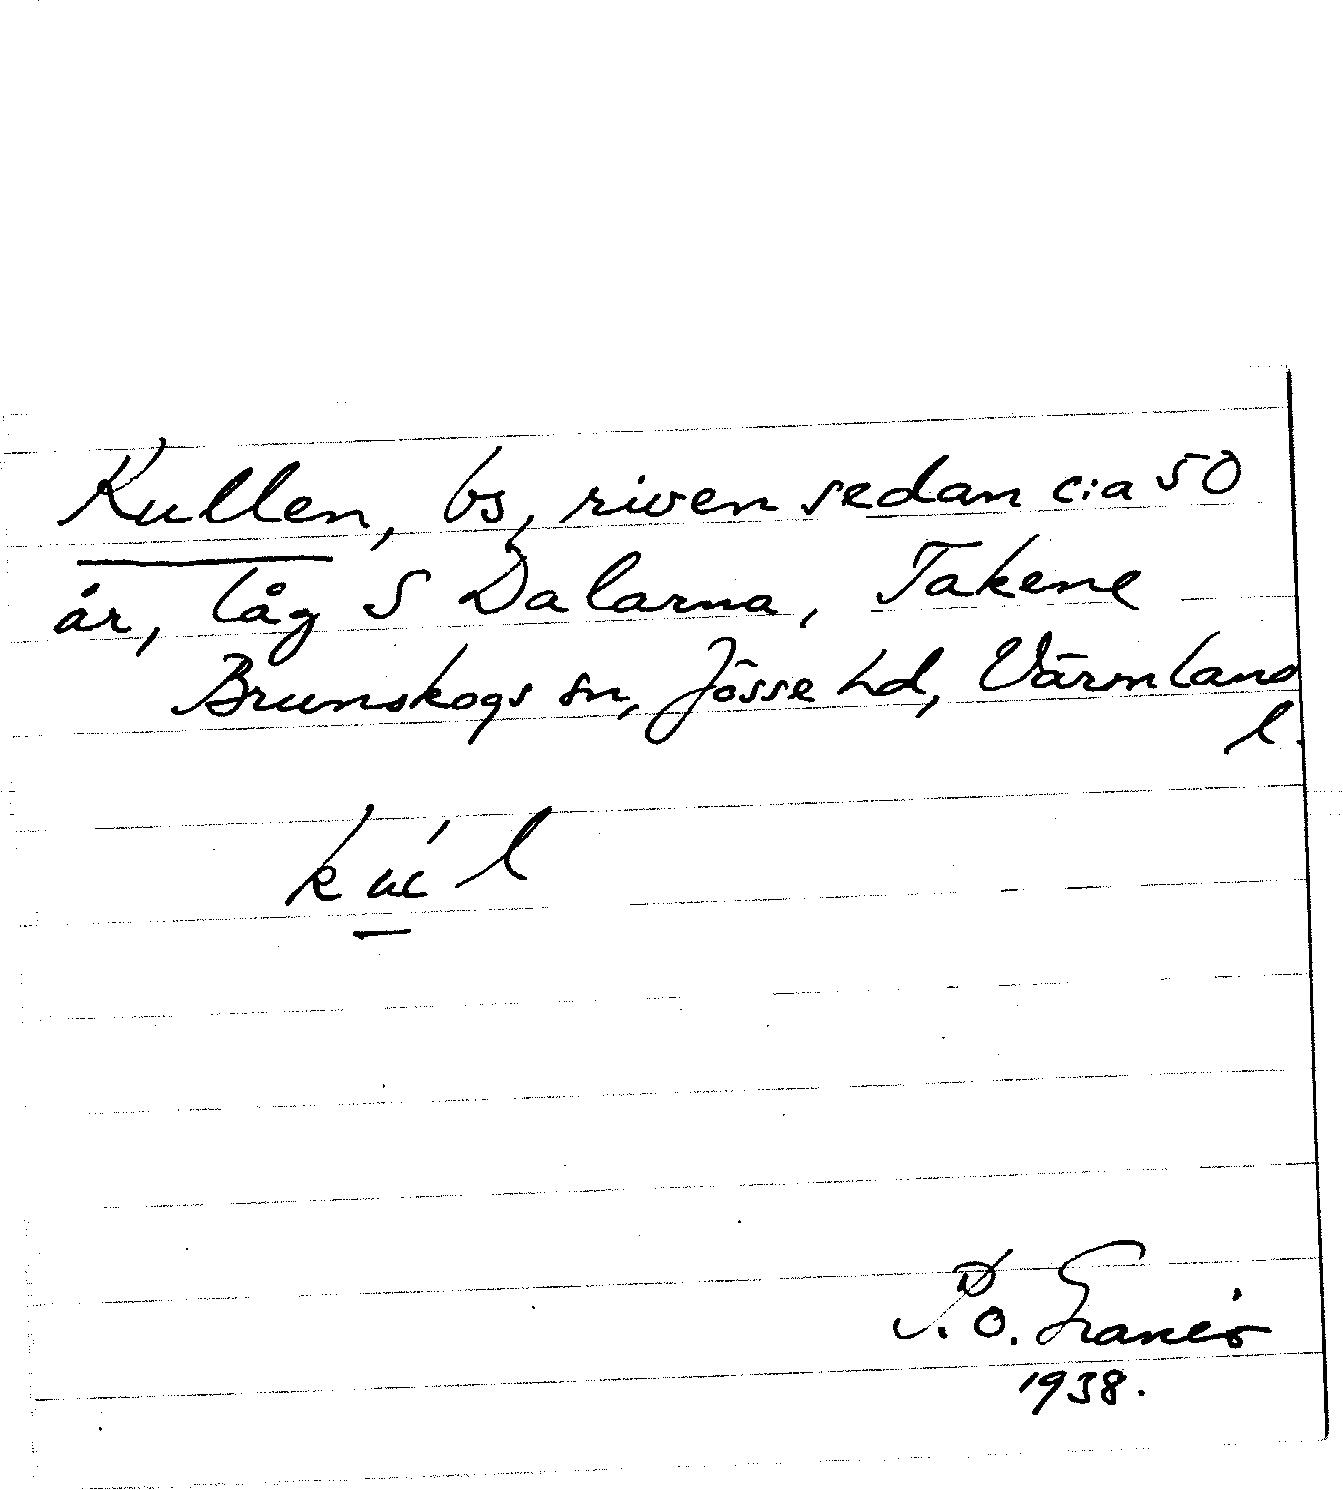 Kullen, bs, riven sedan c:a 50
år, låg S Dalarna, Takene
Brunskogs sn, Jösse hd, Värmland
l.
P. O.
1938.